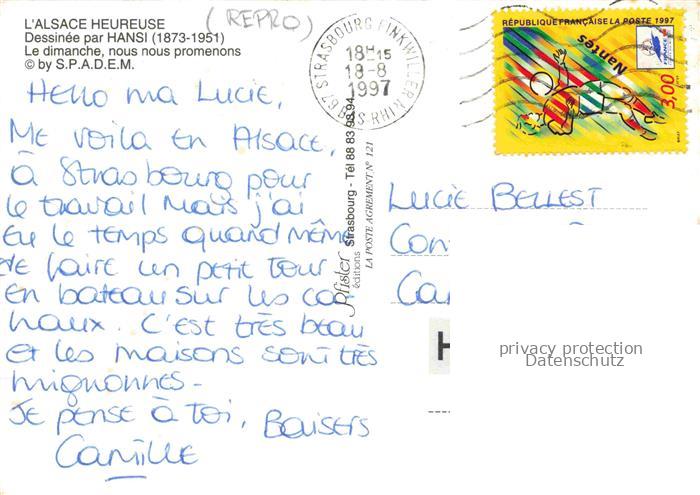 L'ALSACE HEUREUSE
(REPRO)
Dessinée par HANSI (1873-1951)
Le dimanche, nous nous promenons
© by S.P.A.D.E.M.
67 STRASBOURG FINKWILLER
BAS RHIN
18H15
18-8
1997
RÉPUBLIQUE FRANÇAISE LA POSTE 1997
Nantes
3,00
Hello ma Lucie,
Me voila en Alsace,
à Strasbourg pour
le travail mais j'ai
eu le temps quand même
de faire un petit tour
en bateau sur les ca-
naux. C'est très beau
et les maisons sont très
mignonnes -
Je pense à toi, Baisers
Camille
Pfister
éditions Strasbourg - Tél 88 83 98 94
LA POSTE AGREMENT N° 121
Lucie BELLEST
Con
Ca
H
privacy protection
Datenschutz